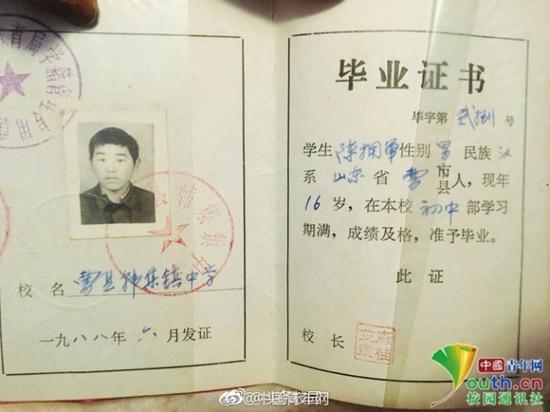 校 名 曹县韩集镇中学
一九八八年 六月发证
毕业证书
毕字第 号
学生 陈拥军 性别 男 民族 汉
系 山东 省 曹 市县 人，现年
16 岁，在本校 初中 部学习
期满，成绩及格，准予毕业。
此 证
校 长
中國青年网
youth.cn
校园通讯社